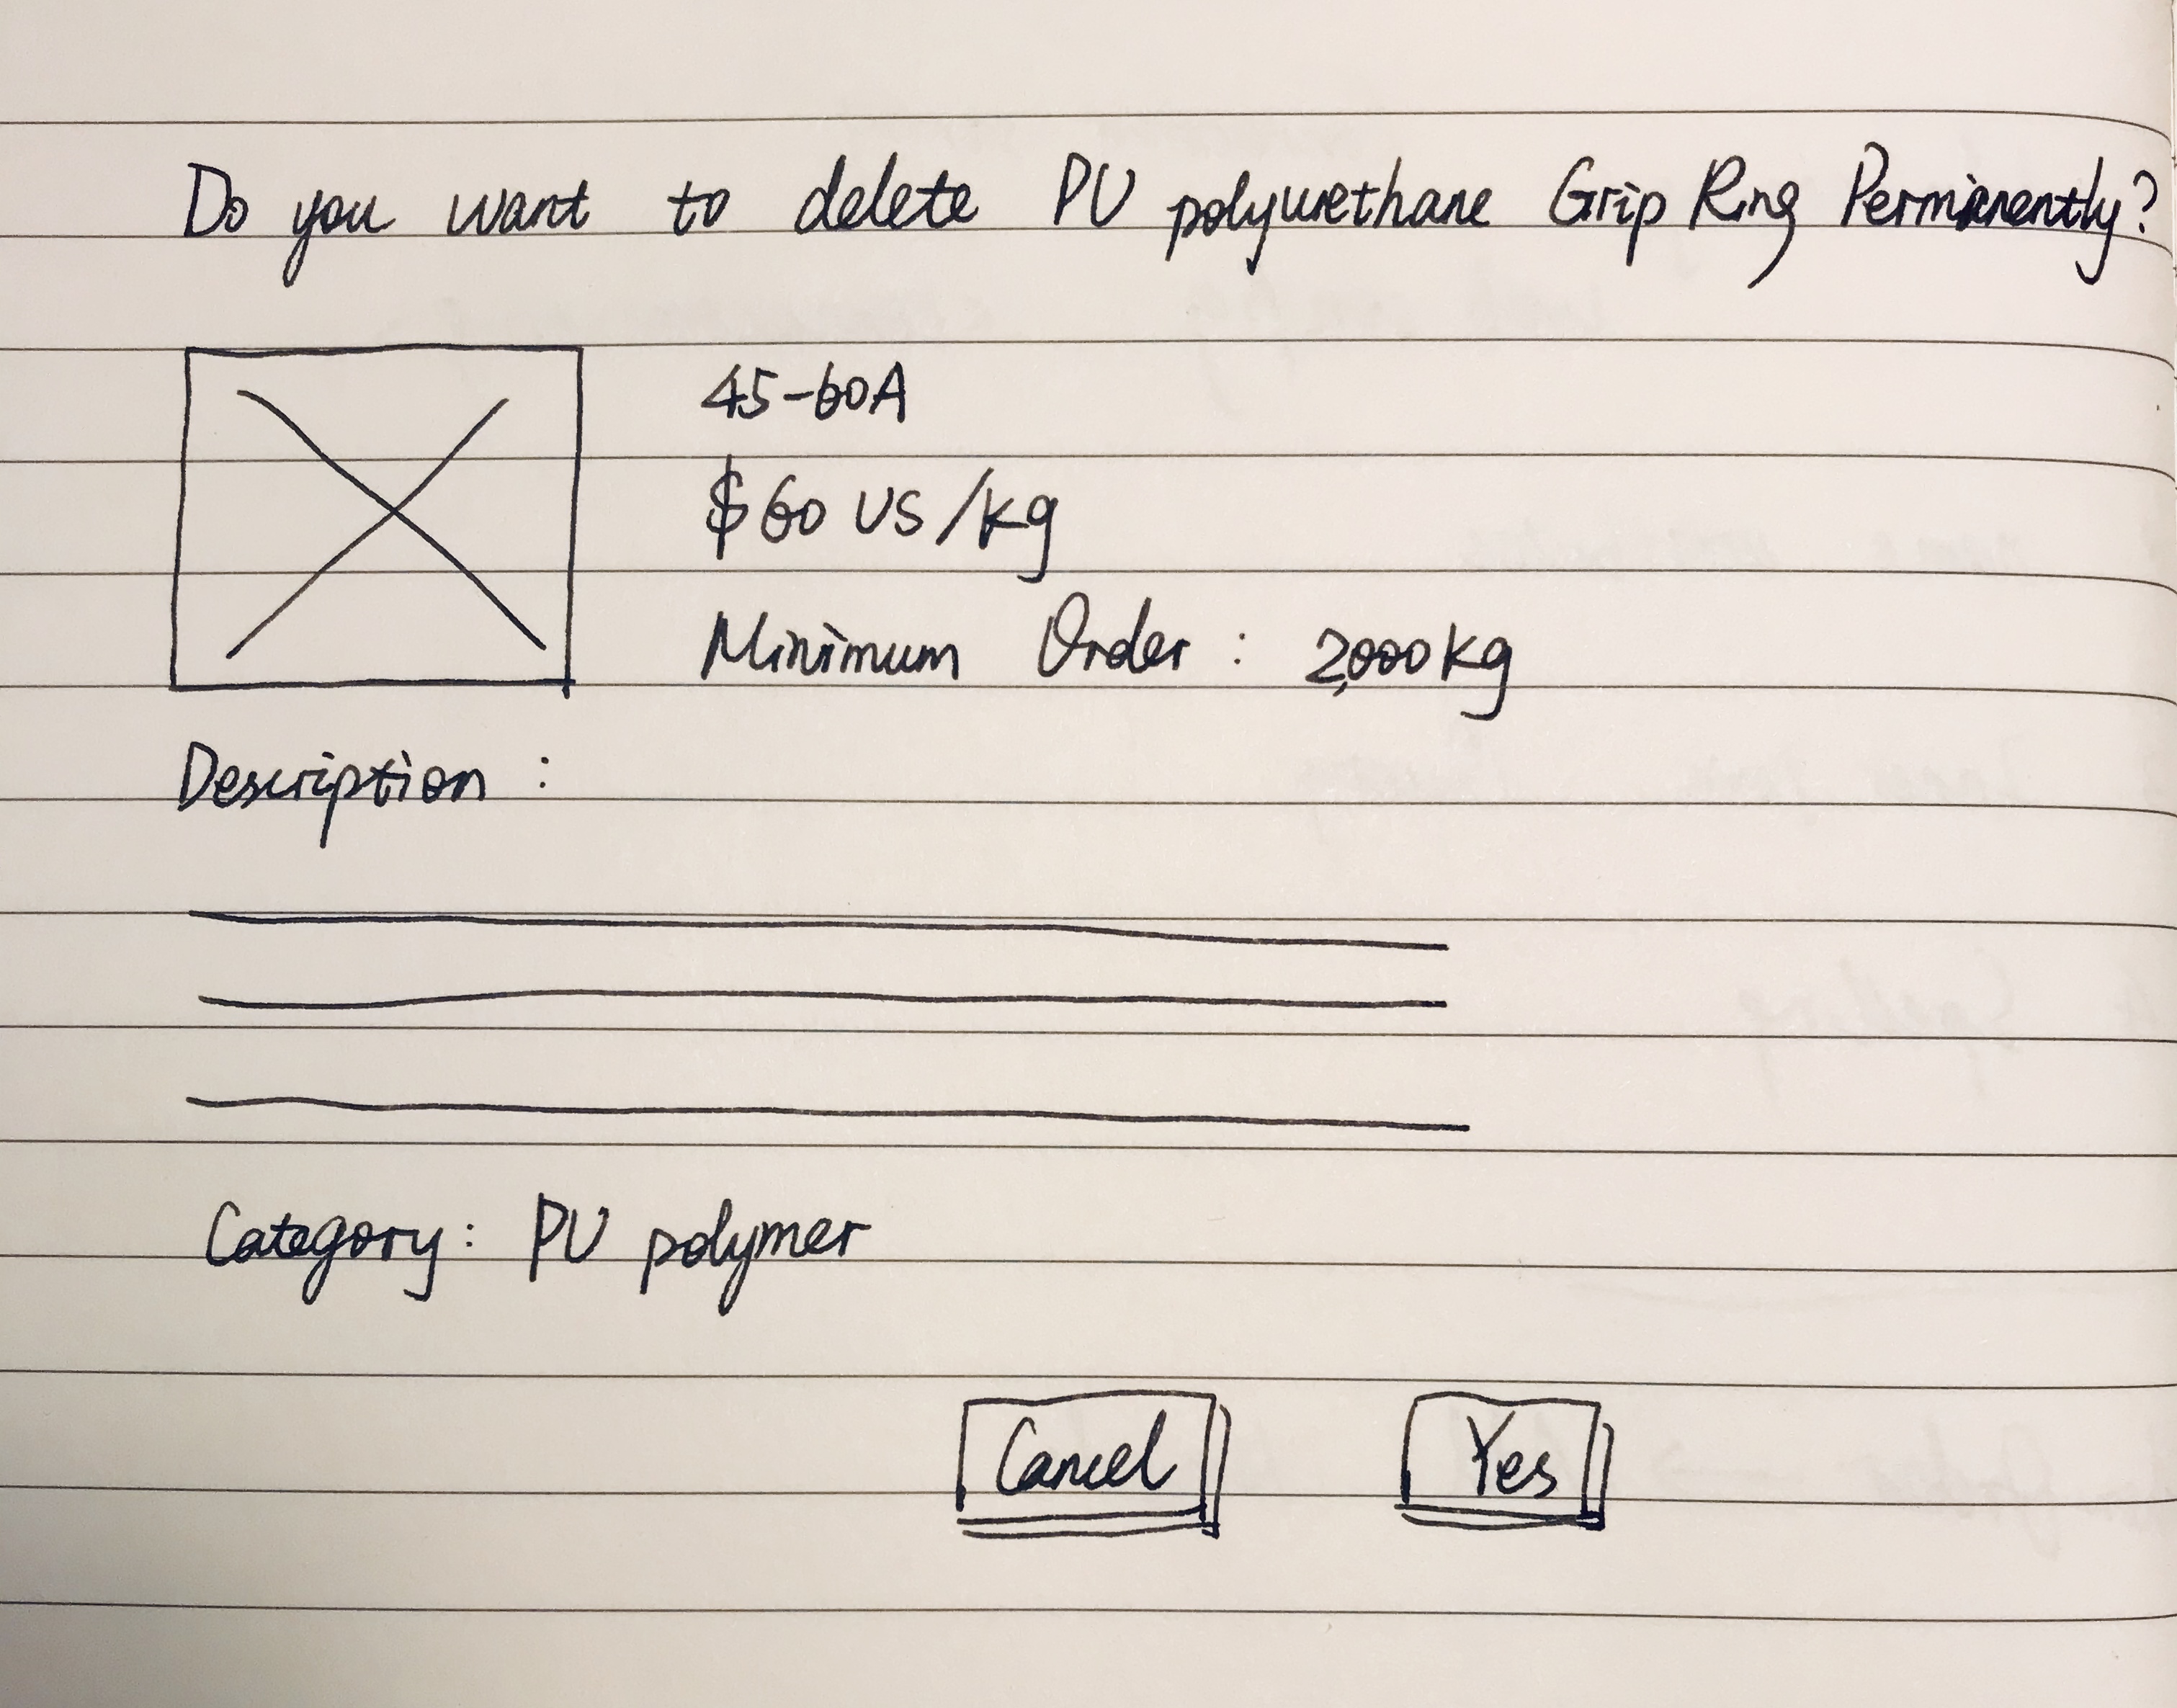 Do you want to delete PU polyurethane Grip Ring Permanently?
45-60A
$60 US/kg
Minimum Order : 2,000kg
Description :
Category: PU polymer
Cancel
Yes